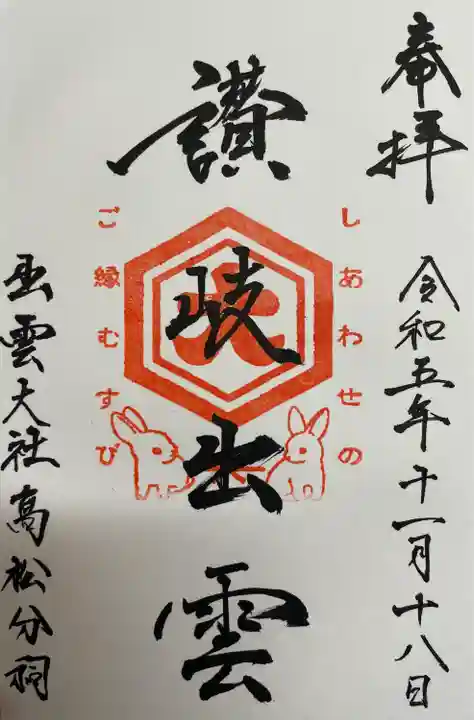 奉拝
令和五年十一月十八日
しあわせの
讃岐出雲
大
ご縁むすび
出雲大社高松分祠